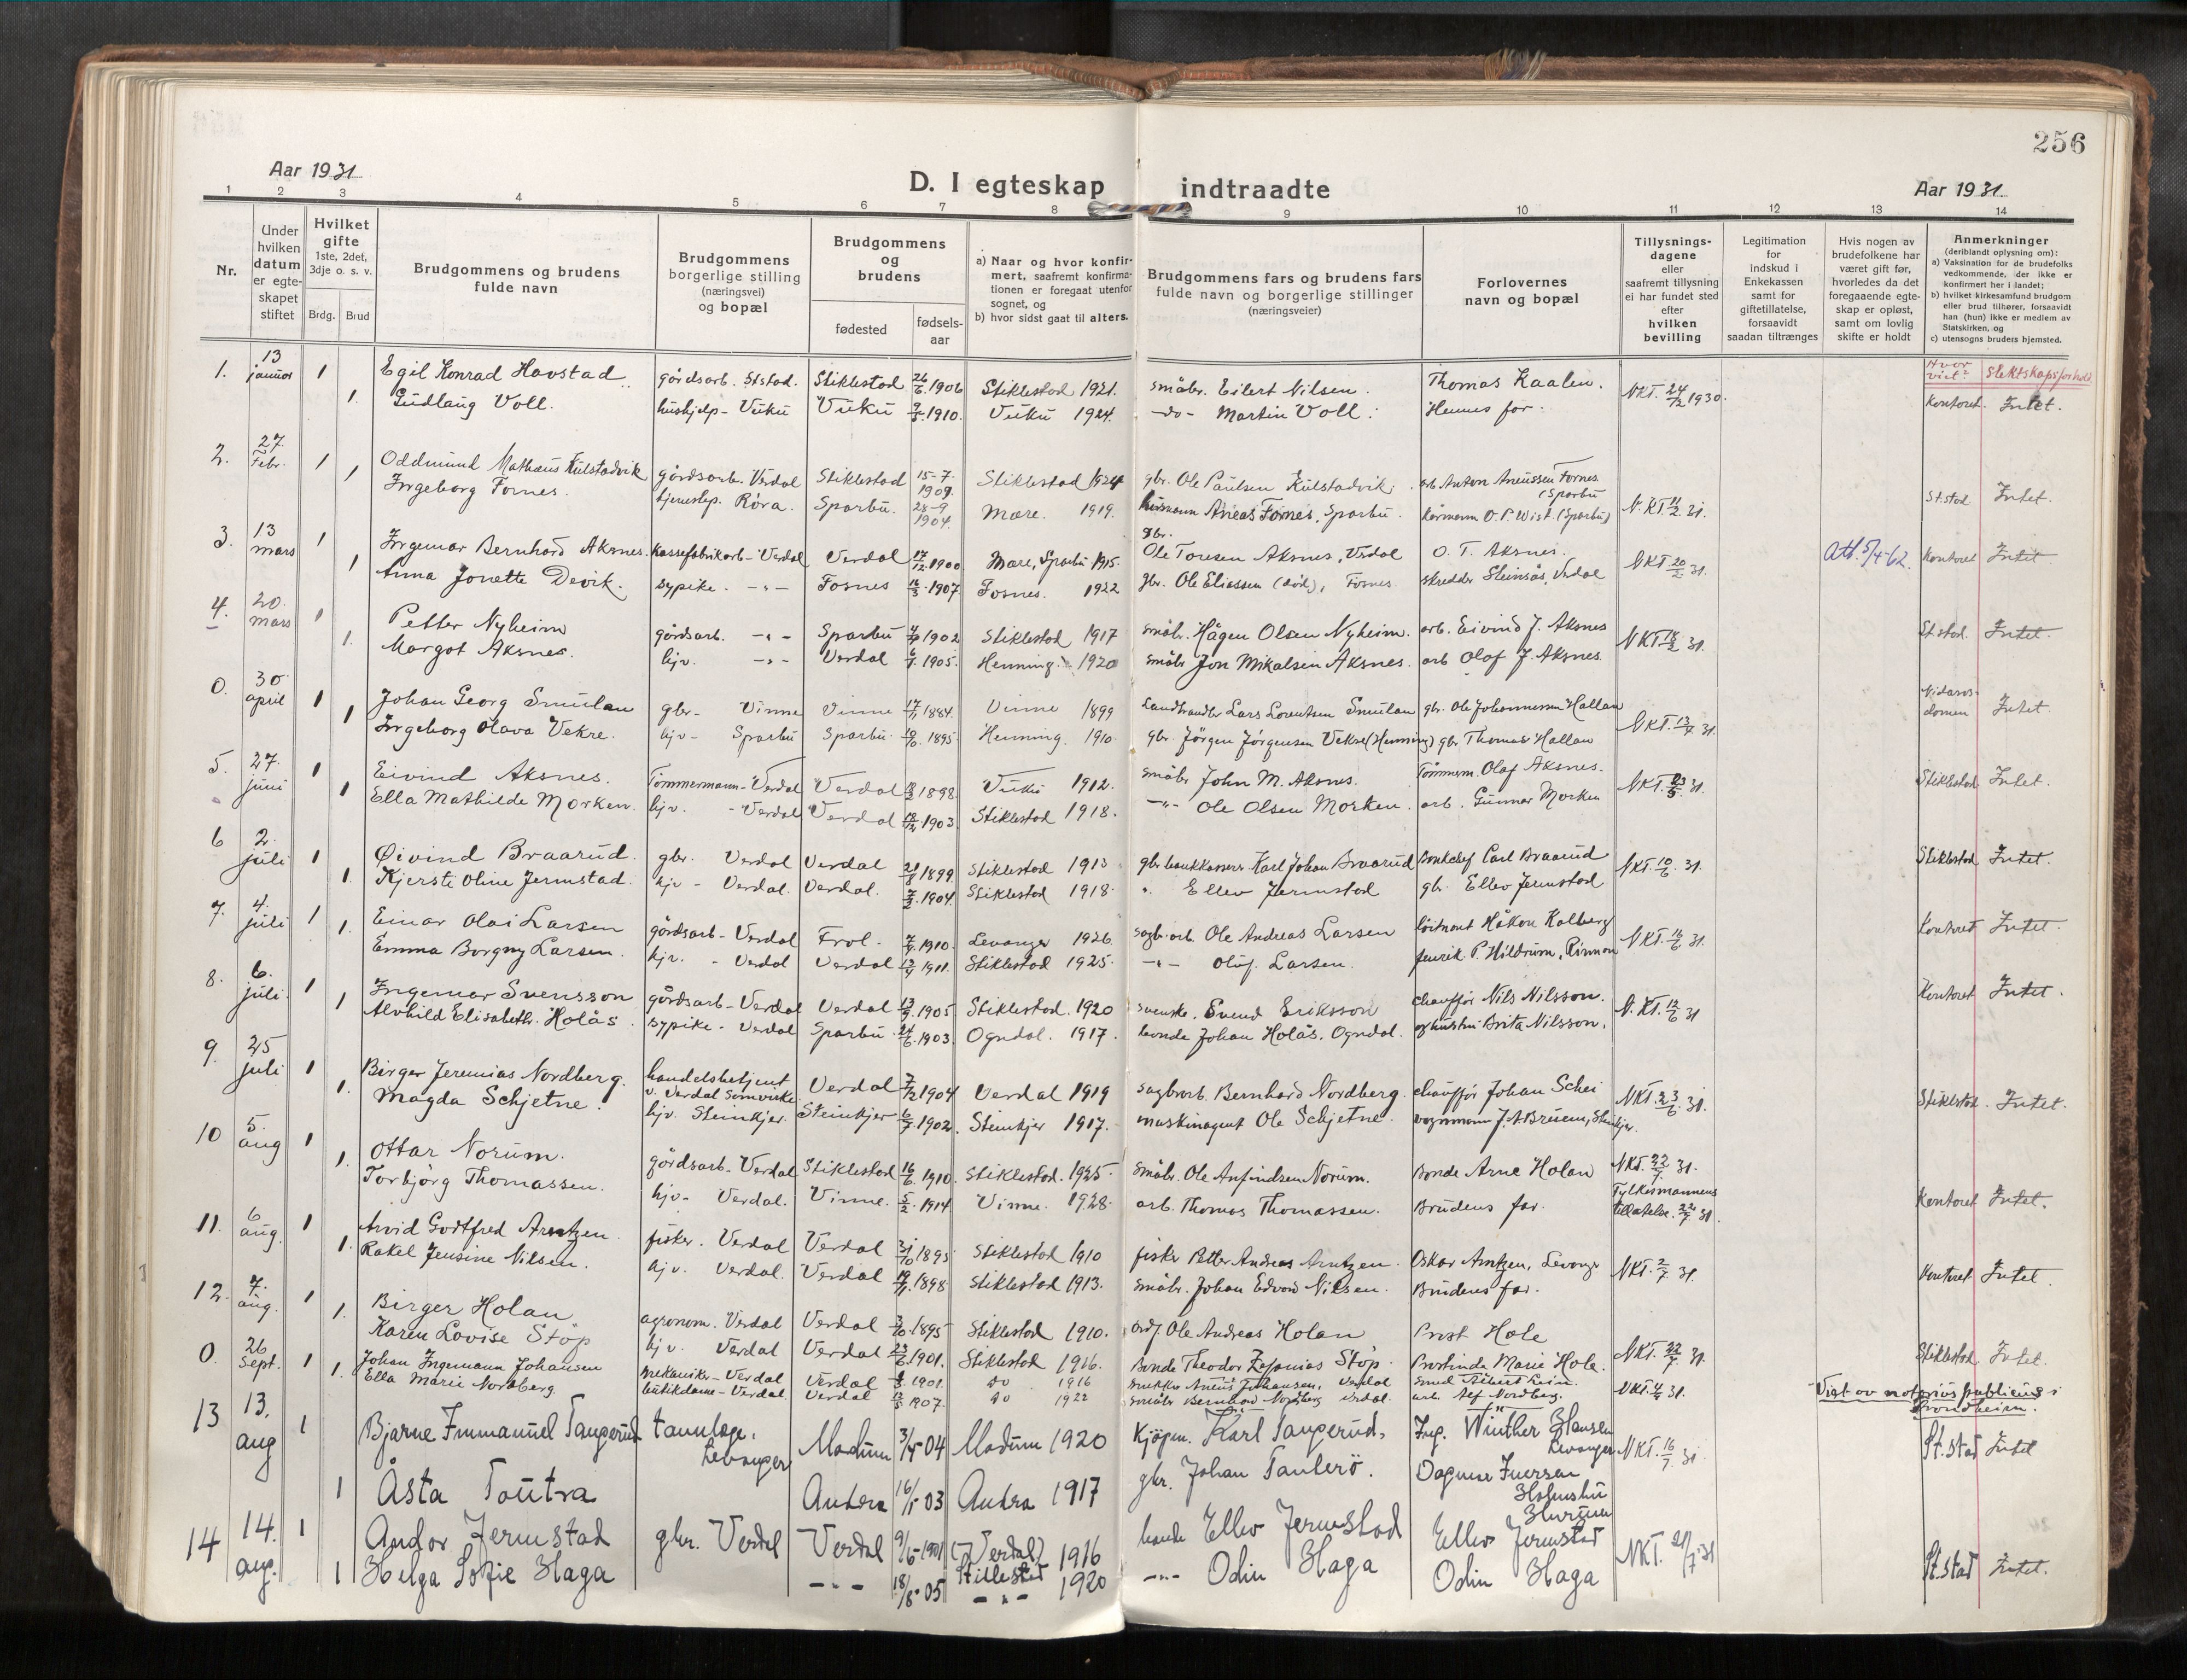 256
Aar 1931
D. I egteskap indtraadte
Aar 1931.
1 2 3 4 5 6 7 8 9 10 11 12 13 14
Nr.
Under hvilken datum er egteskapet stiftet
Hvilket gifte 1ste, 2det, 3dje o. s. v.
Brdg. Brud
Brudgommens og brudens fulde navn
Brudgommens borgerlige stilling (næringsvei) og bopæl
Brudgommens og brudens
fødested
fødsels-aar
a) Naar og hvor konfirmert, saafremt konfirmationen er foregaat utenfor sognet, og
b) hvor sidst gaat til alters.
Brudgommens fars og brudens fars fulde navn og borgerlige stillinger (næringsveier)
Forlovernes navn og bopæl
Tillysnings-dagene eller saafremt tillysning ei har fundet sted efter hvilken bevilling
Legitimation for indskud i Enkekassen samt for giftetillatelse, forsaavidt saadan tiltrænges
Hvis nogen av brudefolkene har været gift før, hvorledes da det foregaaende egteskap er opløst, samt om lovlig skifte er holdt
Anmerkninger (deriblandt oplysning om):
a) Vaksination for de brudefolks vedkommende, der ikke er konfirmert her i landet;
b) hvilket kirkesamfund brudgom eller brud tilhører, forsaavidt han (hun) ikke er medlem av Statskirken, og
c) utensogns bruders hjemsted.
Hvor viet? Slektskapsforhold.
1. 13 januar 1 Egil Konrad Havstad gårdsarb. Ststad. Stiklestad 26/6 1906 Stiklestad 1921. småbr. Eilert Nilsen. Thomas Kaalen. NKT. 24/12 1930. Kontoret. Intet.
1. Gudlaug Voll. hushjelp - Vuku Vuku 1910. Vuku 1924. -do- Martin Voll. Hennes far.
2. 27. Febr. 1 Oddmund Mathæus Kulstadvik gårdsarb. Verdal Stiklestad 15-7. 1909. Stiklestad 1924 gbr. Ole Paulsen Kulstadvik. arb. Anton Aneussen Fornes (Sparbu N.KT. 11/2 31. St.stad Intet.
1 Ingeborg Fornes. tjenestep. Røra. Sparbu. 28-9 1904. Mære. 1919. Aneas Fornes, Sparbu. O. P. Wist (Sparbu)
3. 13 mars 1 Ingemar Bernhard Aksnes. kassefabrikarb - Verdal Verdal 17/12 1900 Mære, Sparbu 1915. gbr. Ole Tonesen Aksnes, Verdal O. T. Aksnes. NKT. 20/2 31. Att. 5/4-62. Kontoret Intet
1 Anna Jonette Devik. sypike. -"- Fosnes 1907. Fosnes. 1922 gbr. Ole Eliassen (død), Fosnes. skredder Steinsås, Verdal
4. 20. mars 1 Petter Nyheim gårdsarb. -"- Sparbu 1902 Stiklestad 1917 småbr. Hågen Olsen Nyheim. arb. Eivind J. Aksnes NKT. 18/2 31. St.stad. Intet.
1. Margot Aksnes. hjv. -"- Verdal 1905. Henning. 1920 småbr Jon Mikalsen Aksnes. arb Olaf J. Aksnes
0. 30. april 1 Johan Georg Smulan gbr - Vinne Vinne 17/11 1884. Vinne 1899 Landhandler Lars Lorentsen Smulan gbr. Ole Johannessen Hallan NKT. 13/4 31. Nidarosdomen Intet.
1 Ingeborg Olava Vekre. hjv - Sparbu Sparbu. 1895 Henning. 1910. gbr. Jørgen Jørgensen Vekre (Henning) gbr Thomas Hallan
5. 27. juni 1 Eivind Aksnes. Tømmermann - Verdal Verdal 1898 Vuku 1912. småbr John M. Aksnes. Tømmerm. Olaf Aksnes. NKT. 23/5 31. Stiklestad Intet.
1 Ella Mathilde Morken. hjv. - Verdal Verdal 18/12 1903. Stiklestad 1918. -"- Ole Olsen Morken. arb. Gunnar Morken
6 2. juli 1 Øivind Braarud. gbr. Verdal Verdal 1899 Stiklestad 1913 gbr bankkasserer Karl Johan Braarud Banksjef Carl Braarud NKT. 10/6 31. Stiklestad Intet.
1. Kjersti Oline Jermstad. hjv - Verdal. Verdal. 1904. Stiklestad 1918. " Ellev Jermstad gb. Ellev Jermstad
7. 4. juli 1 Einar Olai Larsen gårdsarb - Verdal Frol. 1910. Levanger 1926. sagbr.arb. Ole Andreas Larsen løitnant Håkon Kalberg NKT. 16/6 31. Kontoret Intet.
1. Emma Borgny Larsen. hjv. - Verdal Verdal 1911. Stiklestad 1925. -"- Oluf Larsen. fenrik P. Hildrum, Rinnan
8. 6. juli. 1 Ingemar Svensson gårdsarb - Verdal Verdal 1905 Stiklestad. 1920 svenske. Svend Eriksson chauffør Nils Nilsson. N.KT. 12/6 31 Kontoret Intet.
1 Alvhild Elisabeth. Holås. sypike - Verdal Sparbu 1903 Ogndal. 1917. bonde Johan Holås. Ogndal. og hustru Brita Nilsson.
9. 25 juli 1 Birger Jeremias Nordberg. handelsbetjent v. Verdal Samvirke Verdal 1904 Verdal 1919 sagbrarb. Bernhard Nordberg. chauffør Johan Schei NKT. 23/6 31. Stiklestad. Intet.
1. Magda Schjetne. hjv. Steinkjer. Steinkjer 1902. Steinkjer 1917. maskinagent Ole Schjetne vognmann J. A. Breiem, Steinkjer.
10 5. aug 1 Ottar Norum. gårdsarb - Verdal Stiklestad 16/6 1910. Stiklestad. 1925. småbr. Ole Anfindsen Norum. Bonde Arne Holan NKT. 22/7 31. Fylkesmannens tillatelse. 22/7 31. Kontoret Intet.
1. Torbjörg Thomassen. hjv - Verdal. Vinne. 5/2 1914 Vinne. 1928. arb. Thomas Thomassen. Brudens far.
11. 6 aug. 1 Arvid Godtfred Arntzen. fisker. Verdal Verdal 31/10 1895 Stiklestad 1910 fisker Petter Andreas Arntzen. Oskar Arntzen, Levanger NKT. 2/7 31. Kontoret Intet.
1. Rakel Jensine Nilsen. hjv. Verdal. Verdal 1898 Stiklestad 1913. småbr. Johan Edvard Nilsen. Brudens far.
12. 7. aug. 1 Birger Holan agronom. Verdal Verdal 1895 Stiklestad 1910. Ole Andreas Holan Prost Hole NKT. 22/7 31. Stiklestad Intet.
1. Karen Lovise Støp hjv. Verdal Verdal 23/6 1901. Stiklestad 1916. Bonde Theodor Støp. Prostinde Marie Hole.
0. 26 Sept. 1 Johan Ingemann Johansen mekaniker - Verdal Verdal 1901. do 1916 Aneus Johansen, Verdal NKT. 31. Viet av notarius publicus i Trondheim.
1. Ella Marie Nordberg. butikdame - Verdal. Verdal 1907. do 1922 småbr Bernhard Nordberg Verdal. arb. Alf Nordberg.
13 13. aug 1 Bjarne Emmanuel Tangerud tannlæge, Levanger Modum 3/4 04 Modum 1920 Kjøpm. Karl Tangerud, Ing. Winther Hansen Levanger NKT. 16/7 31. St.stad Intet
1 Åsta Toutra 16/1 03 1917 gbr. Johan Dagmar
14 14. aug. 1 Andor Jermstad gbr. Verdal Verdal 9/6-1901 (Verdal) Stiklestad 1916 bonde Ellev Jermstad Ellev Jermstad NKT. 21/7 31 St.stad Intet.
1 Helga Sofie Haga -"- 18/8 05 -"- 1920 -"- Odin Haga Odin Haga